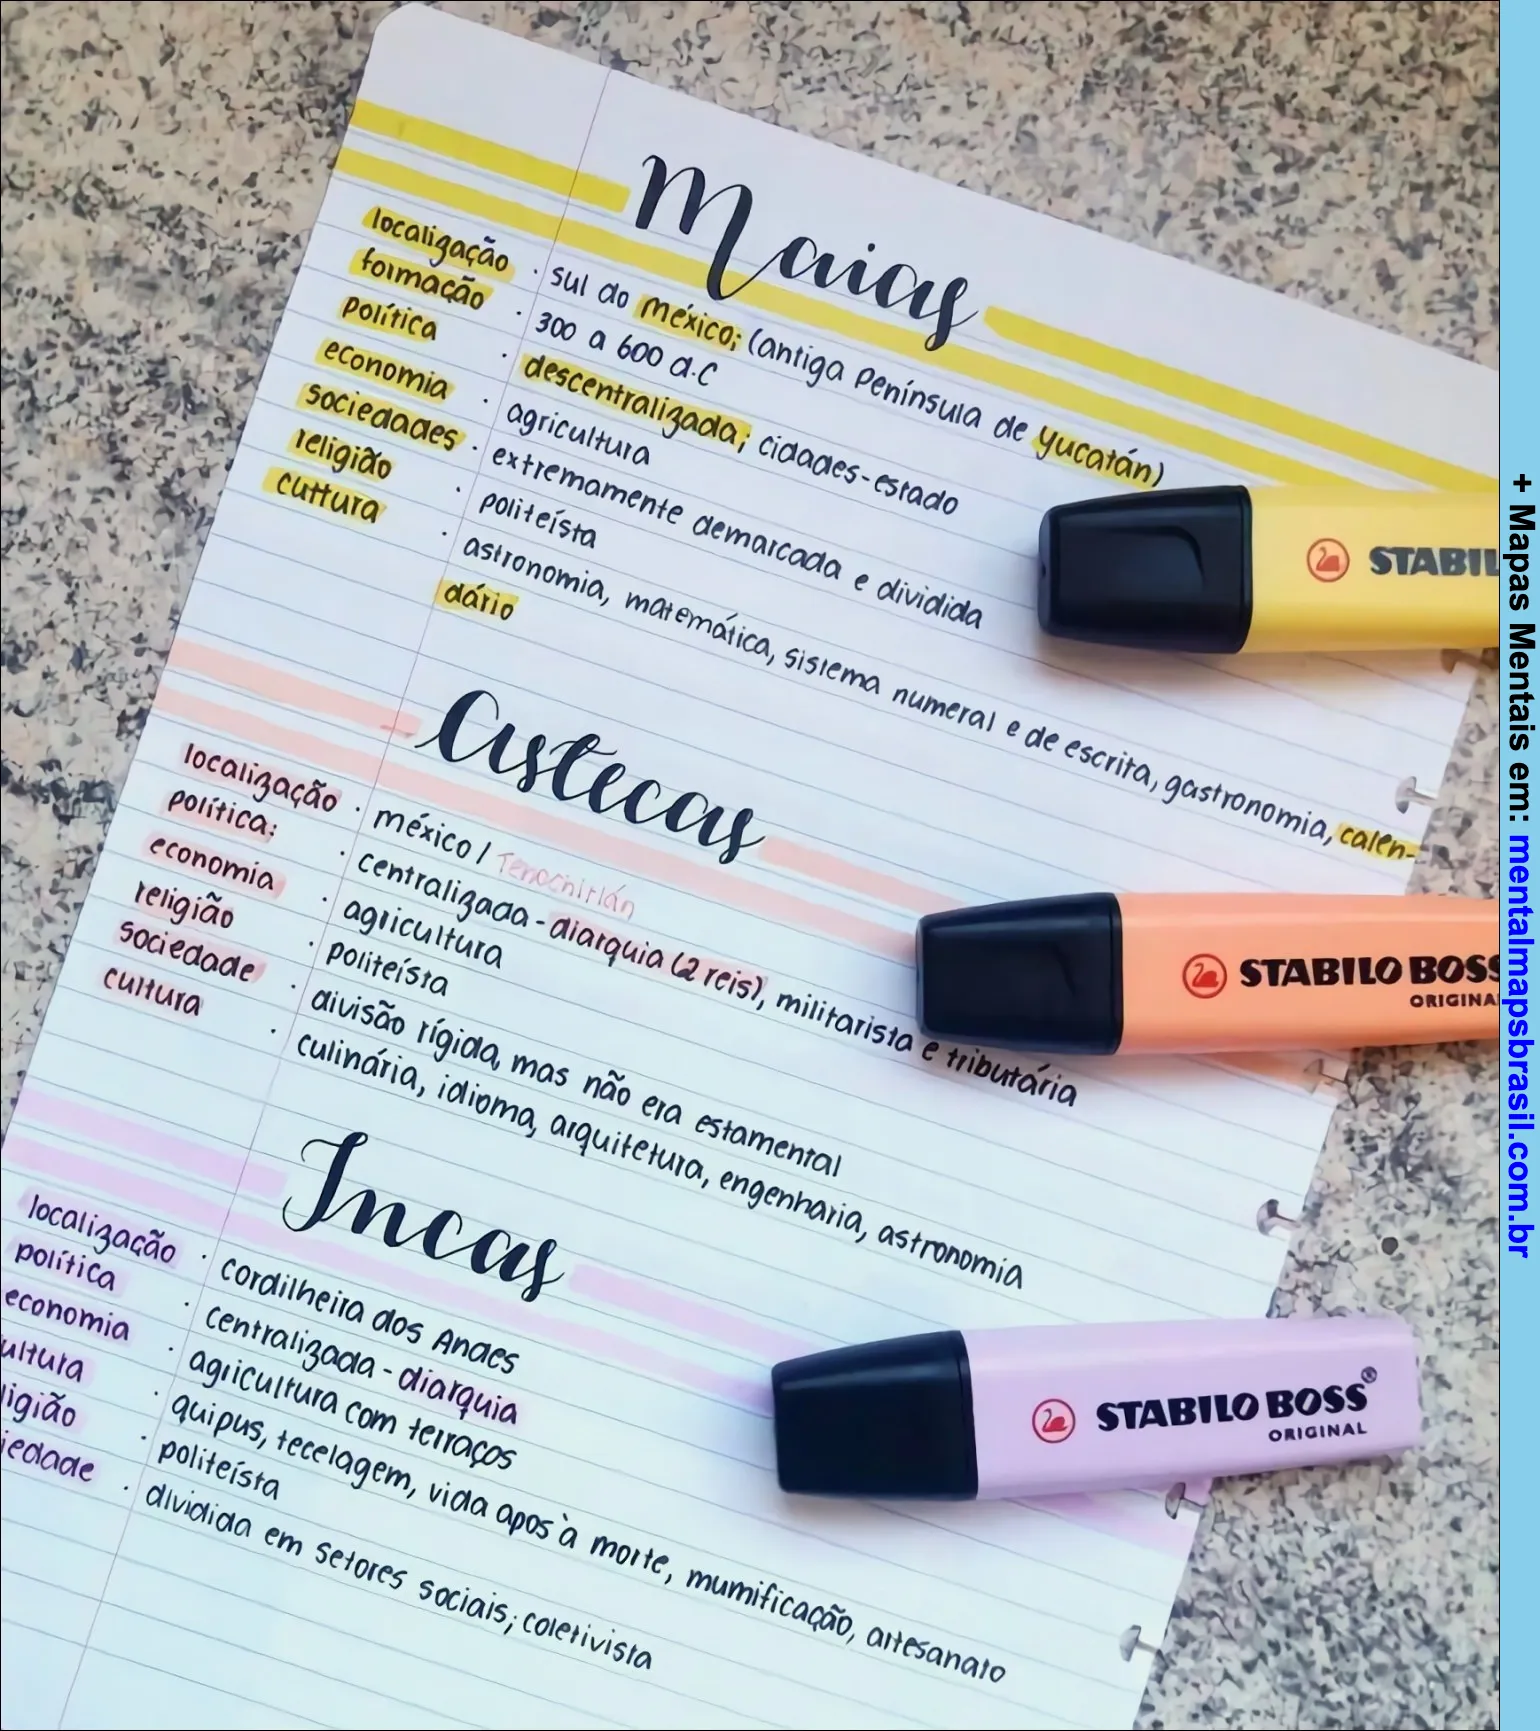 Maias
localização · sul do méxico; (antiga Península de yucatán)
formação · 300 a 600 d.C
política · descentralizada; cidades-estado
economia · agricultura
sociedades · extremamente demarcada e dividida
religião · politeísta
cultura · astronomia, matemática, sistema numeral e de escrita, gastronomia, calen-
dário
STABIL
Astecas
localização · méxico / Tenochtitlán
política: · centralizada - diarquia (2 reis), militarista e tributária
economia · agricultura
religião · politeísta
sociedade · divisão rígida, mas não era estamental
cultura · culinária, idioma, arquitetura, engenharia, astronomia
STABILO BOSS
ORIGINAL
Incas
localização · cordilheira dos Andes
política · centralizada - diarquia
economia · agricultura com terraços
ultura · quipus, tecelagem, vida após à morte, mumificação, artesanato
ligião · politeísta
iedade · dividida em setores sociais; coletivista
STABILO BOSS®
ORIGINAL
+ Mapas Mentais em: mentalmapsbrasil.com.br